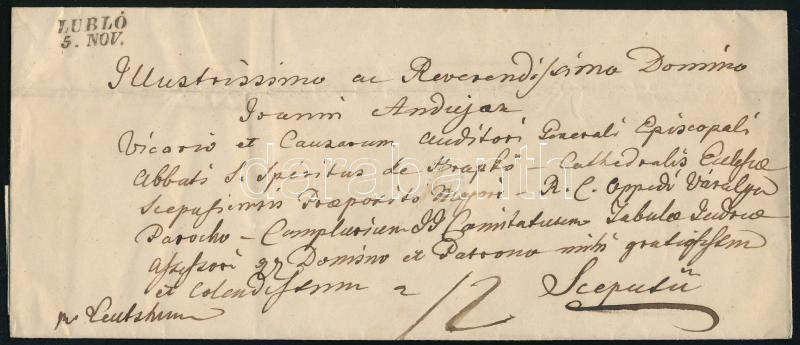 LUBLÓ
5. NOV.
Illustrissimo ac Reverendissimo Domino
Joanni Andujar
Vicario et Causarum Auditori Generali Episcopali
Abbati S. Spiritus de Hrapkó Cathedralis Eclesiæ
Scepusiensis Præposito Majori – R. C. Oppidi Váralya
Parocho – Complurium II Comitatuum Tabulæ Judriæ
Assessori Domino et Patrono mihi gratiosissimo
et Colendissimo
12 Scepusii
pr Leutshium
darabanth